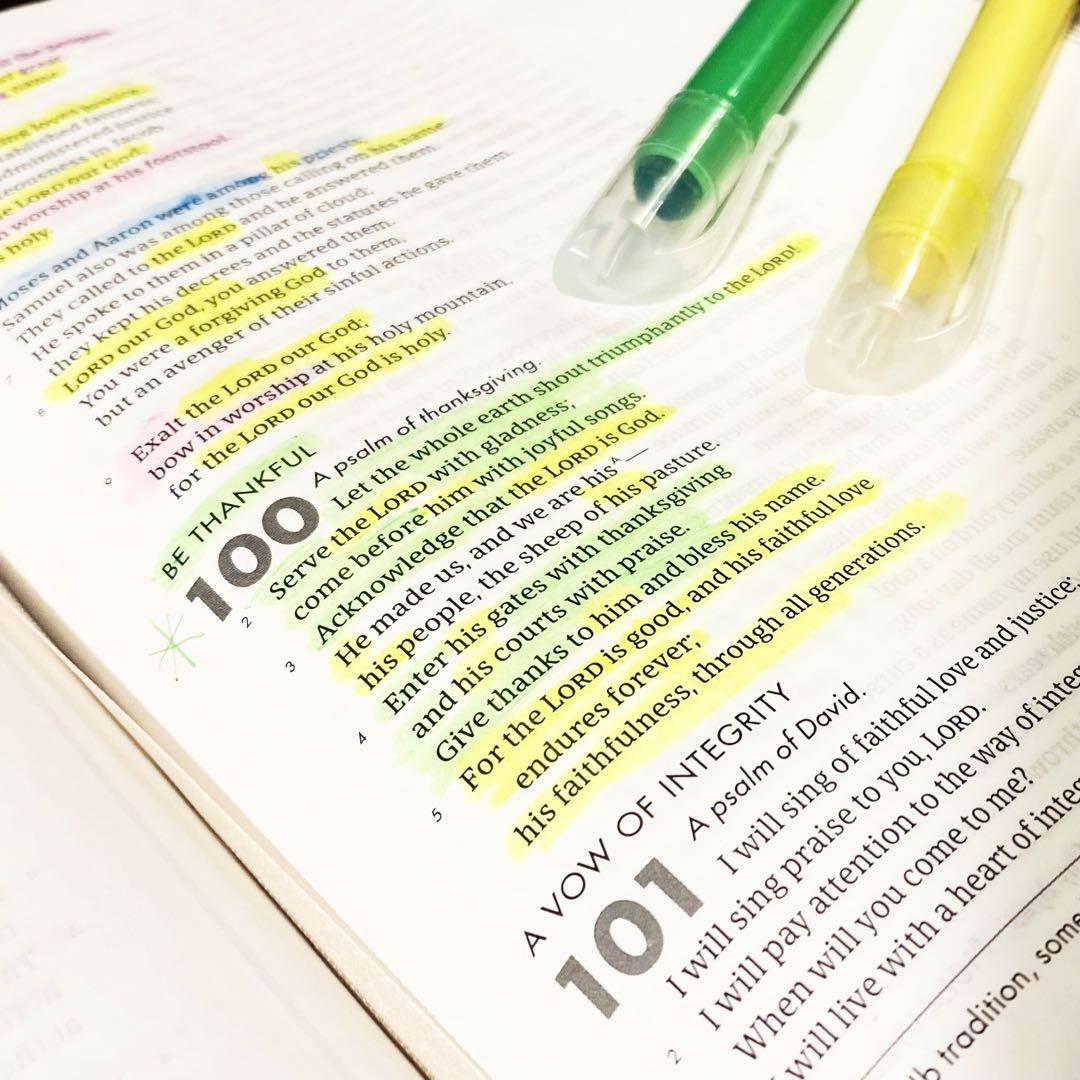 name
LORD our God;
worship at his footstool.
holy.
Moses and Aaron were among his priests;
Samuel also was among those calling on his name.
They called to the LORD and he answered them.
He spoke to them in a pillar of cloud;
they kept his decrees and the statutes he gave them.
LORD our God, you answered them.
You were a forgiving God to them,
but an avenger of their sinful actions.
Exalt the LORD our God;
bow in worship at his holy mountain,
for the LORD our God is holy.
BE THANKFUL
100
A psalm of thanksgiving.
Let the whole earth shout triumphantly to the LORD!
2 Serve the LORD with gladness;
come before him with joyful songs.
3 Acknowledge that the LORD is God.
He made us, and we are his^A —
his people, the sheep of his pasture.
4 Enter his gates with thanksgiving
and his courts with praise.
Give thanks to him and bless his name.
5 For the LORD is good, and his faithful love
endures forever;
his faithfulness, through all generations.
A VOW OF INTEGRITY
101
A psalm of David.
I will sing of faithful love and justice;
I will sing praise to you, LORD.
2 I will pay attention to the way of
When will you come to me?
I will live with a heart of
tradition,